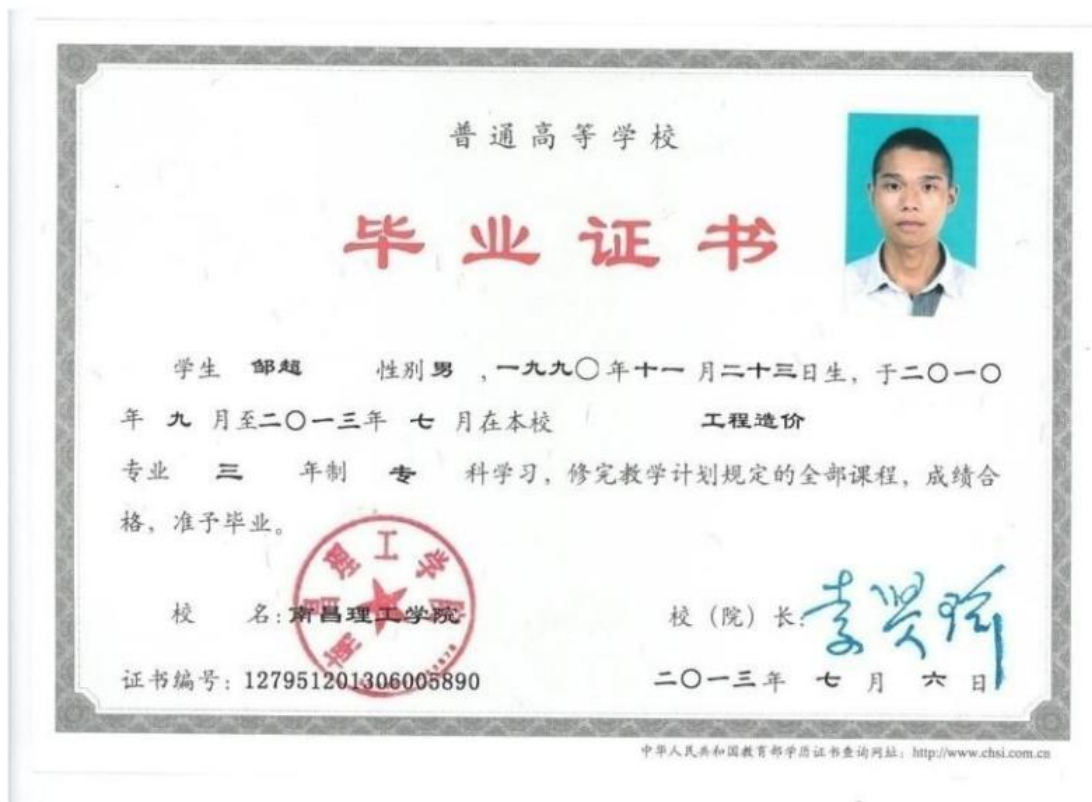 普通高等学校
毕业证书
学生 邹超 性别 男 ,一九九〇年十一月二十三日生，于二〇一〇
年 九 月至二〇一三年 七 月在本校 工程造价
专业 三 年制 专 科学习，修完教学计划规定的全部课程，成绩合
格，准予毕业。
校 名：南昌理工学院
校（院）长：
证书编号：127951201306005890
二〇一三年 七 月 六 日
中华人民共和国教育部学历证书查询网址：http://www.chsi.com.cn